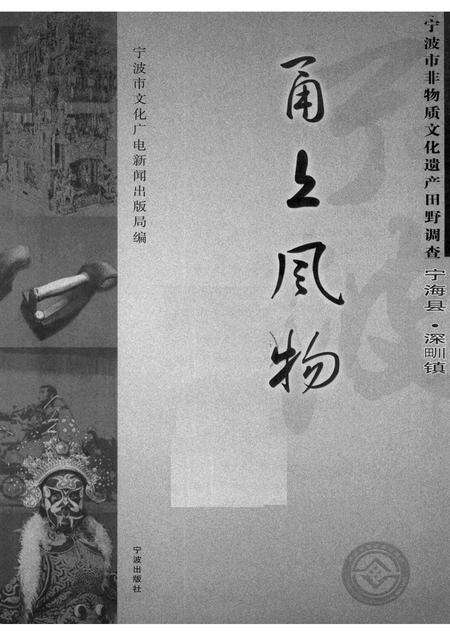 宁波市非物质文化遗产田野调查
宁海县·深甽镇
甬上风物
宁波市文化广电新闻出版局编
宁波出版社